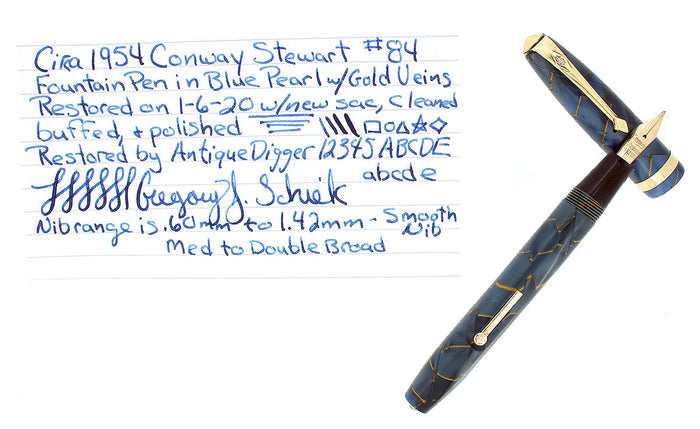 Circa 1954 Conway Stewart #84
Fountain Pen in Blue Pearl w/Gold Veins
Restored on 1-6-20 w/new sac, cleaned
buffed, & polished
Restored by AntiqueDigger 12345 ABCDE
abcde
Gregory J.
Nib range is .60mm to 1.42mm - Smooth
Nib
Med to Double Broad